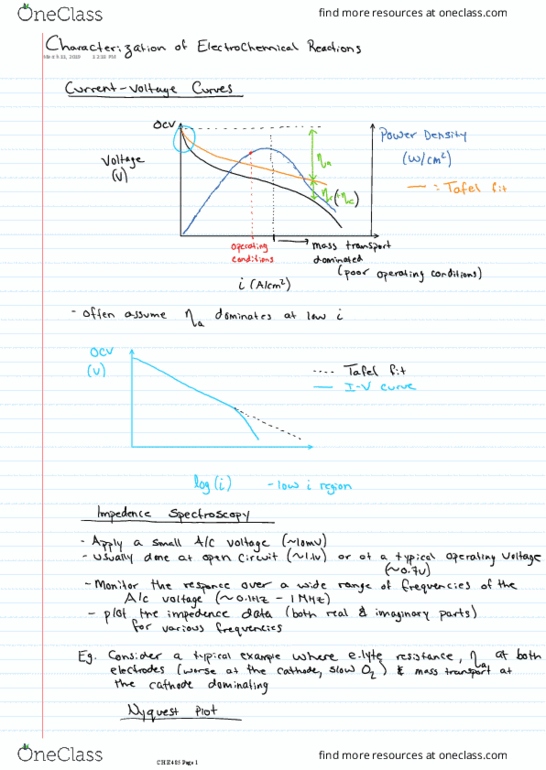 OneClass
find more resources at oneclass.com
Characterization of Electrochemical Reactions
12:18 PM
Current-Voltage Curves
OCV
Voltage
(V)
ηa
Power Density
(W/cm²)
— : Tafel fit
operating
conditions
mass transport
dominated
(poor operating conditions)
i (A/cm²)
- Often assume ηa dominates at low i
OCV
(V)
---- Tafel fit
— I-V curve
log(i) - low i region
Impedence Spectroscopy
- Apply a small A/C voltage (~10mV)
- Usually done at open circuit (~1.1V) or at a typical operating voltage
(~0.7V)
- Monitor the responce over a wide range of frequencies of the
A/C voltage (~0.1Hz - 1MHz)
- plot the impedence data (both real & imaginary parts)
for various frequencies
Eg. Consider a typical example where e.lyte resistance, ηa at both
electrodes (worse at the cathode, slow O₂) & mass transport at
the cathode dominating
Nyquest Plot
OneClass
CHE 415 Page 1
find more resources at oneclass.com